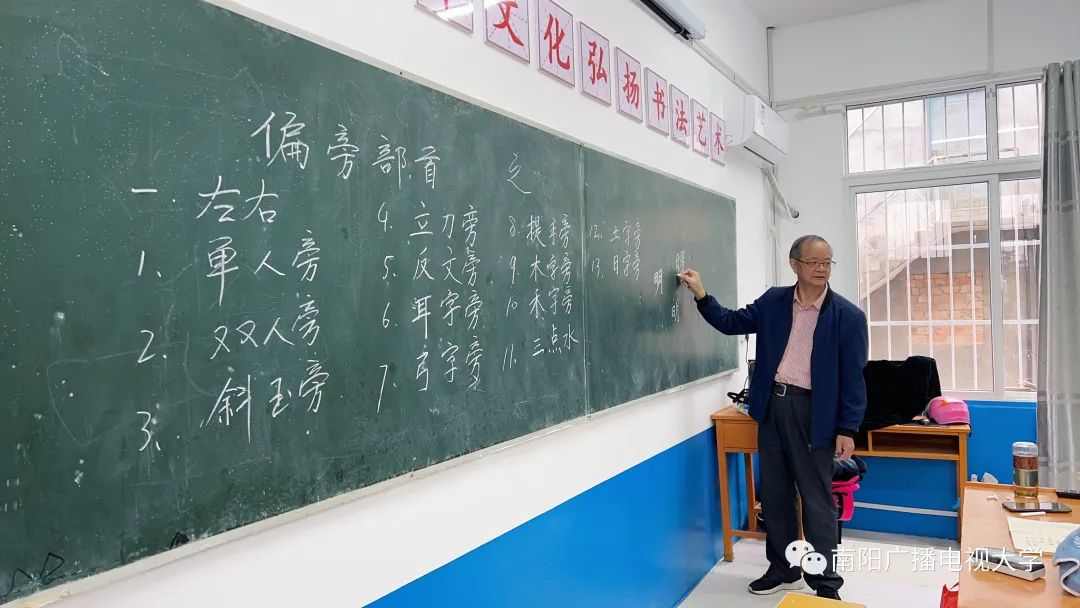 文化弘扬书法艺术
偏旁部首 之
一 左右
1. 单人旁
2. 双人旁
3. 斜玉旁
4. 立刀旁
5. 反文旁
6. 耳字旁
7. 弓字旁
8. 提手旁
9. 木字旁
10. 禾字旁
11. 三点水
12. 土字旁
13. 日字旁
明
明
南阳广播电视大学